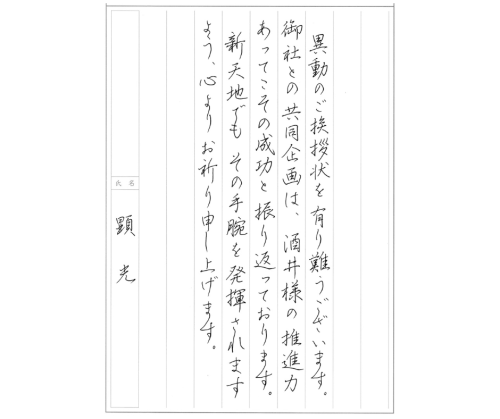 異動のご挨拶状を有り難うございます。
御社との共同企画は、酒井様の推進力
あってこその成功と振り返っております。
新天地でもその手腕を発揮されます
よう、心よりお祈り申し上げます。
氏名
顕光